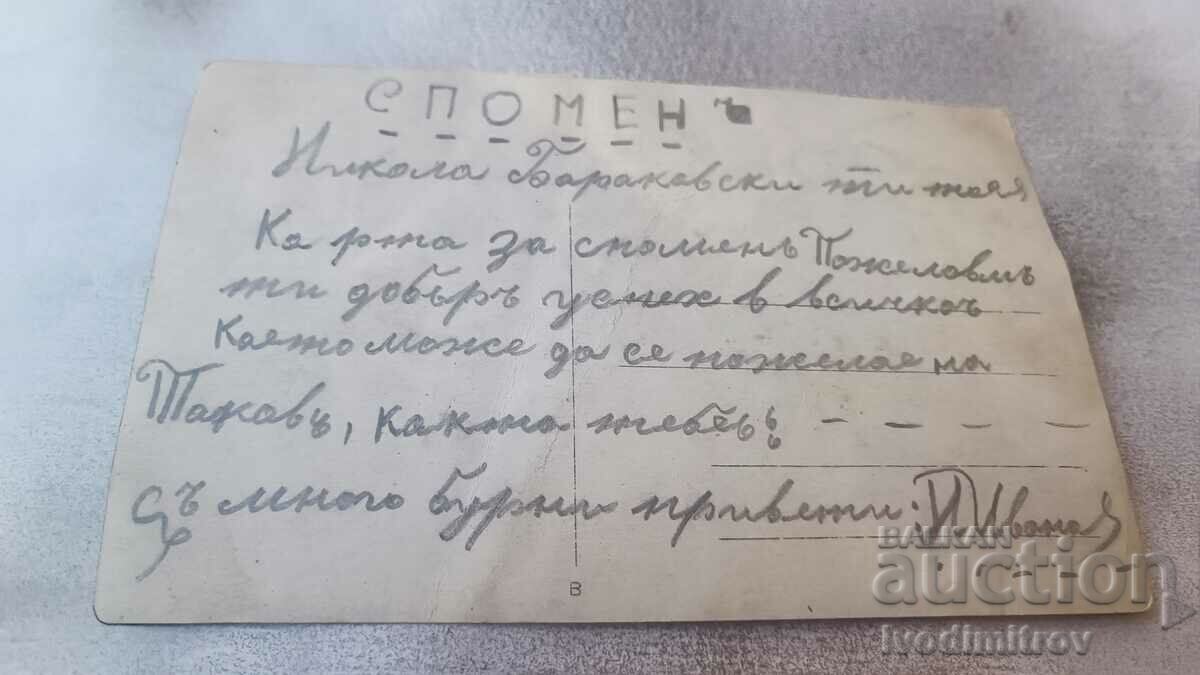 СПОМЕНЪ
Никола Бараковски ти тая
Ка рта за споменъ Пожеловамъ
ти добъръ успех в всичко
Каето може да се пожелае на
Таковъ, какта тебе:
Съ много бурни привети:
В
BALKAN
auction
Ivodimitrov